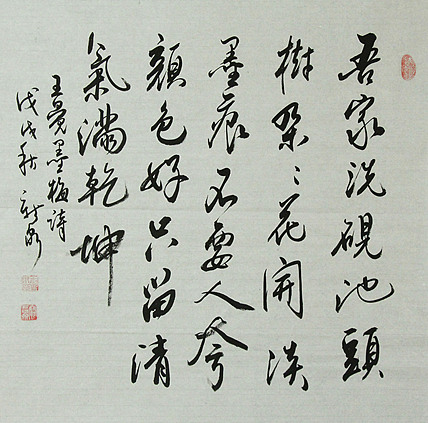 吾家洗硯池頭
樹朵〻花開淡
墨痕不要人夸
顏色好只留清
氣滿乾坤
王冕墨梅詩
戊戌秋